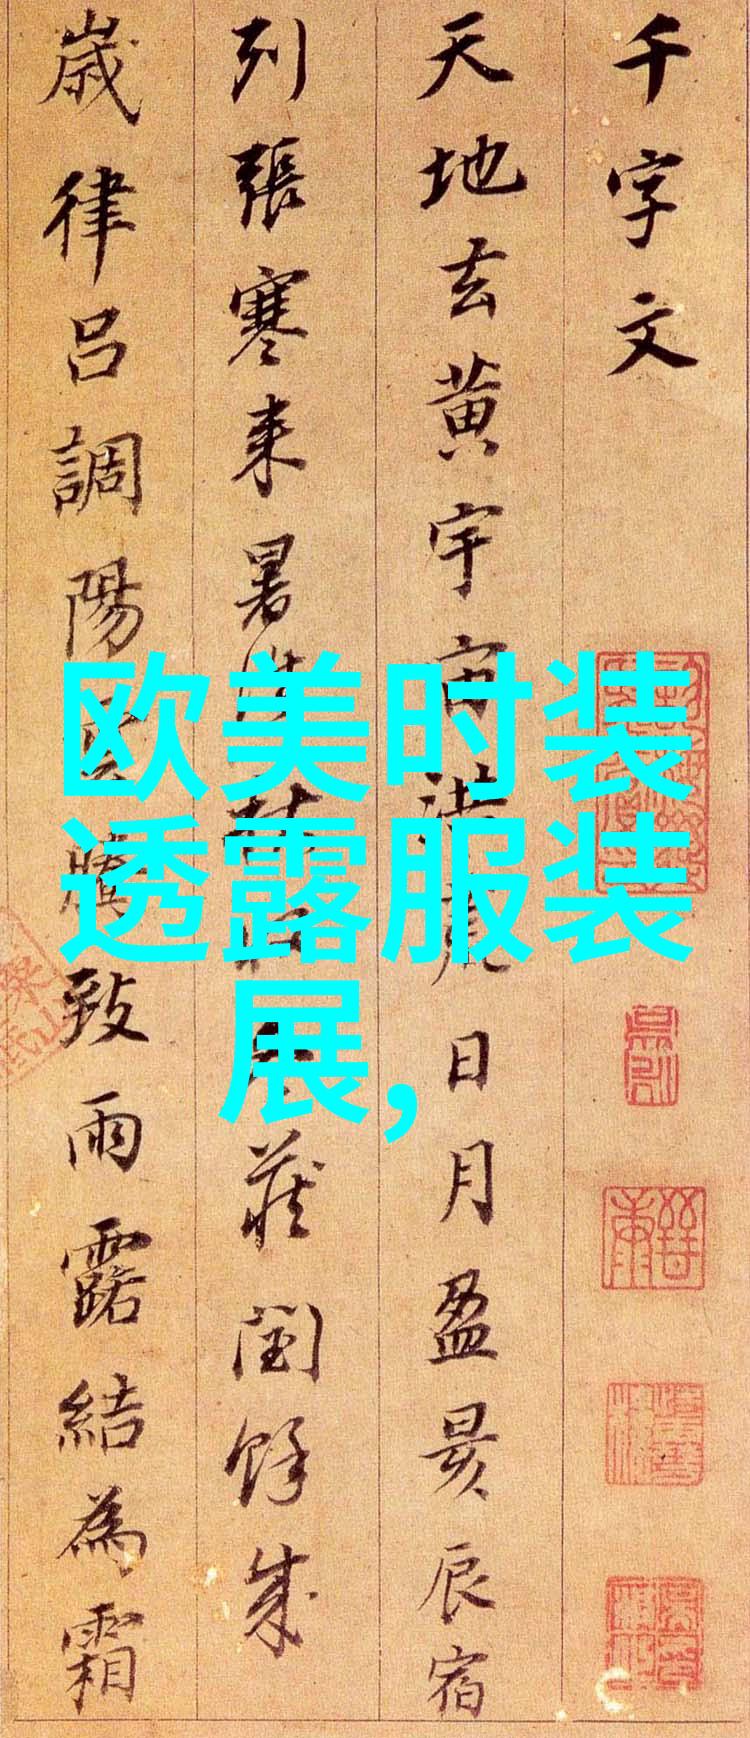 千字文
天地玄黄宇宙洪荒日月盈昃辰宿
列張寒来暑往秋收冬蔵閏餘成
歲律呂調陽雲騰致雨露結為霜
欧美时装
透露服装
展,